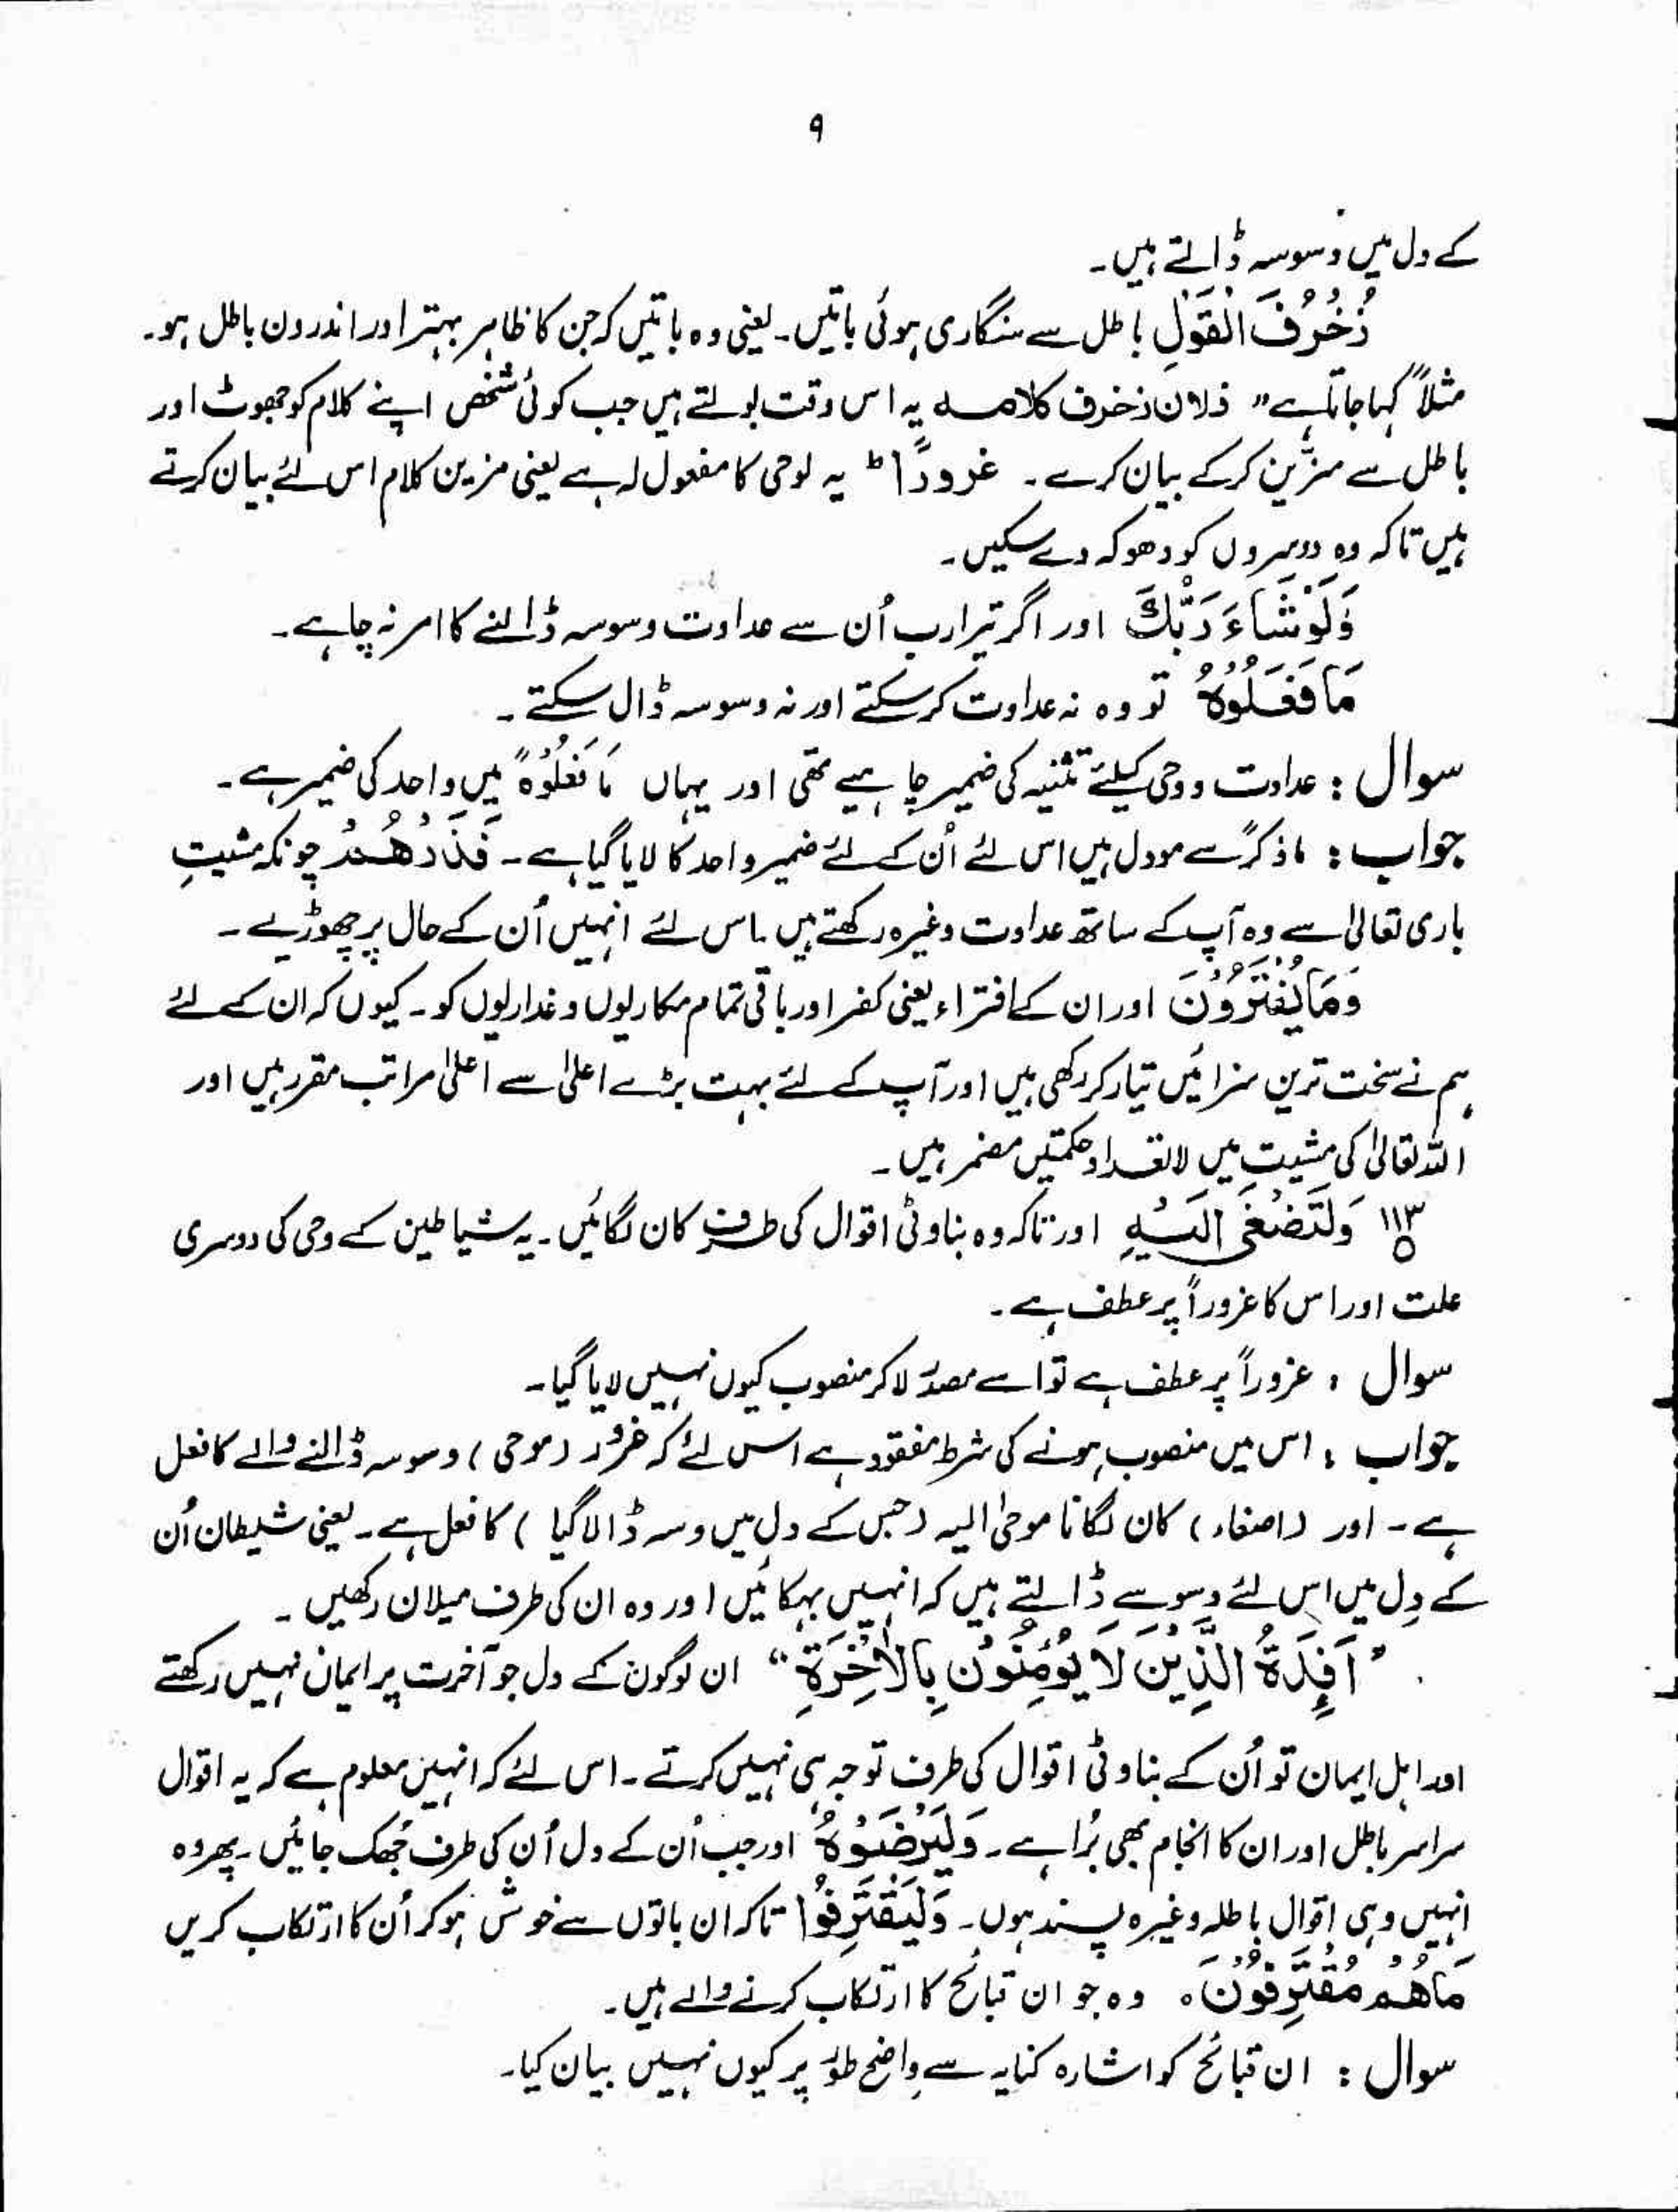 ۹
کے دل میں وسوسہ ڈالتے ہیں۔
زُخْرُفَ الْقَوْلِ باطل سے سنگاری ہوئی باتیں۔ یعنی وہ باتیں کہ جن کا ظاہر بہتر اور اندرون باطل ہو۔
مثلاً کہا جاتا ہے " فلان زخرف کلامہ یہ اس وقت بولتے ہیں جب کوئی شخص اپنے کلام کو جھوٹ اور
باطل سے مزّین کرکے بیان کرے۔ غرورًا ط یہ لوحی کا مفعول لہ ہے یعنی مزین کلام اس لئے بیان کرتے
ہیں تاکہ وہ دوسروں کو دھوکہ دے سکیں۔
وَلَوْ شَاءَ رَبُّكَ اور اگر تیرا رب اُن سے عداوت وسوسہ ڈالنے کا امر نہ چاہے۔
مَا فَعَلُوْهُ تو وہ نہ عداوت کرسکتے اور نہ وسوسہ ڈال سکتے۔
سوال : عداوت ووحی کیلئے تثنیہ کی ضمیر چاہیے تھی اور یہاں مَا فَعَلُوْہُ میں واحد کی ضمیر ہے۔
جواب : ماذکرً سے مودل ہیں اس لئے اُن کے لئے ضمیر واحد کا لایا گیا ہے۔ فَذَرْهُمْ چونکہ مشیتِ
باری تعالیٰ سے وہ آپ کے ساتھ عداوت وغیرہ رکھتے ہیں۔ اس لئے انہیں اُن کے حال پر چھوڑیے۔
وَمَا يَفْتَرُوْنَ اور ان کے افتراء یعنی کفر اور باقی تمام مکاریوں وغداریوں کو۔ کیوں کہ ان کے لئے
ہم نے سخت ترین سزائیں تیار کر رکھی ہیں اور آپ کے لئے بہت بڑے اعلیٰ سے اعلیٰ مراتب مقرر ہیں اور
اللہ تعالیٰ کی مشیت میں لاتعداد حکمتیں مضمر ہیں۔
۱۱۳ وَلِتَصْغٰى اِلَيْهِ اور تاکہ وہ بناوٹی اقوال کی طرف کان لگائیں۔ یہ شیاطین کے وحی کی دوسری
علت اور اس کا غروراً پر عطف ہے۔
سوال : غروراً پر عطف ہے تو اسے مصدر لاکر منصوب کیوں نہیں لایا گیا۔
جواب : اس میں منصوب ہونے کی شرط مفقود ہے اس لئے کہ غرور (موحی) وسوسہ ڈالنے والے کا فعل
ہے۔ اور (اصغاء) کان لگانا موحیٰ الیہ (جس کے دل میں وسہ ڈالا گیا) کا فعل ہے۔ یعنی شیطان اُن
کے دِل میں اس لئے وسوسے ڈالتے ہیں کہ انہیں بہکائیں اور وہ ان کی طرف میلان رکھیں۔
" اَفْـِٕدَةُ الَّذِيْنَ لَا يُؤْمِنُوْنَ بِالْاٰخِرَةِ " ان لوگوں کے دل جو آخرت پر ایمان نہیں رکھتے
اور اہل ایمان تو اُن کے بناوٹی اقوال کی طرف توجہ ہی نہیں کرتے۔ اس لئے کہ انہیں معلوم ہے کہ یہ اقوال
سراسر باطل اور ان کا انجام بھی بُرا ہے۔ وَلِيَرْضَوْهُ اور جب اُن کے دل اُن کی طرف جُھک جائیں۔ پھر وہ
انہیں وہی اقوال باطلہ وغیرہ پسند ہوں۔ وَلِيَقْتَرِفُوْا تاکہ ان باتوں سے خوش ہوکر اُن کا ارتکاب کریں
مَا هُمْ مُّقْتَرِفُوْنَ۔ وہ جو ان قبائح کا ارتکاب کرنے والے ہیں۔
سوال : ان قبائح کو اشارہ کنایہ سے واضح طور پر کیوں نہیں بیان کیا۔